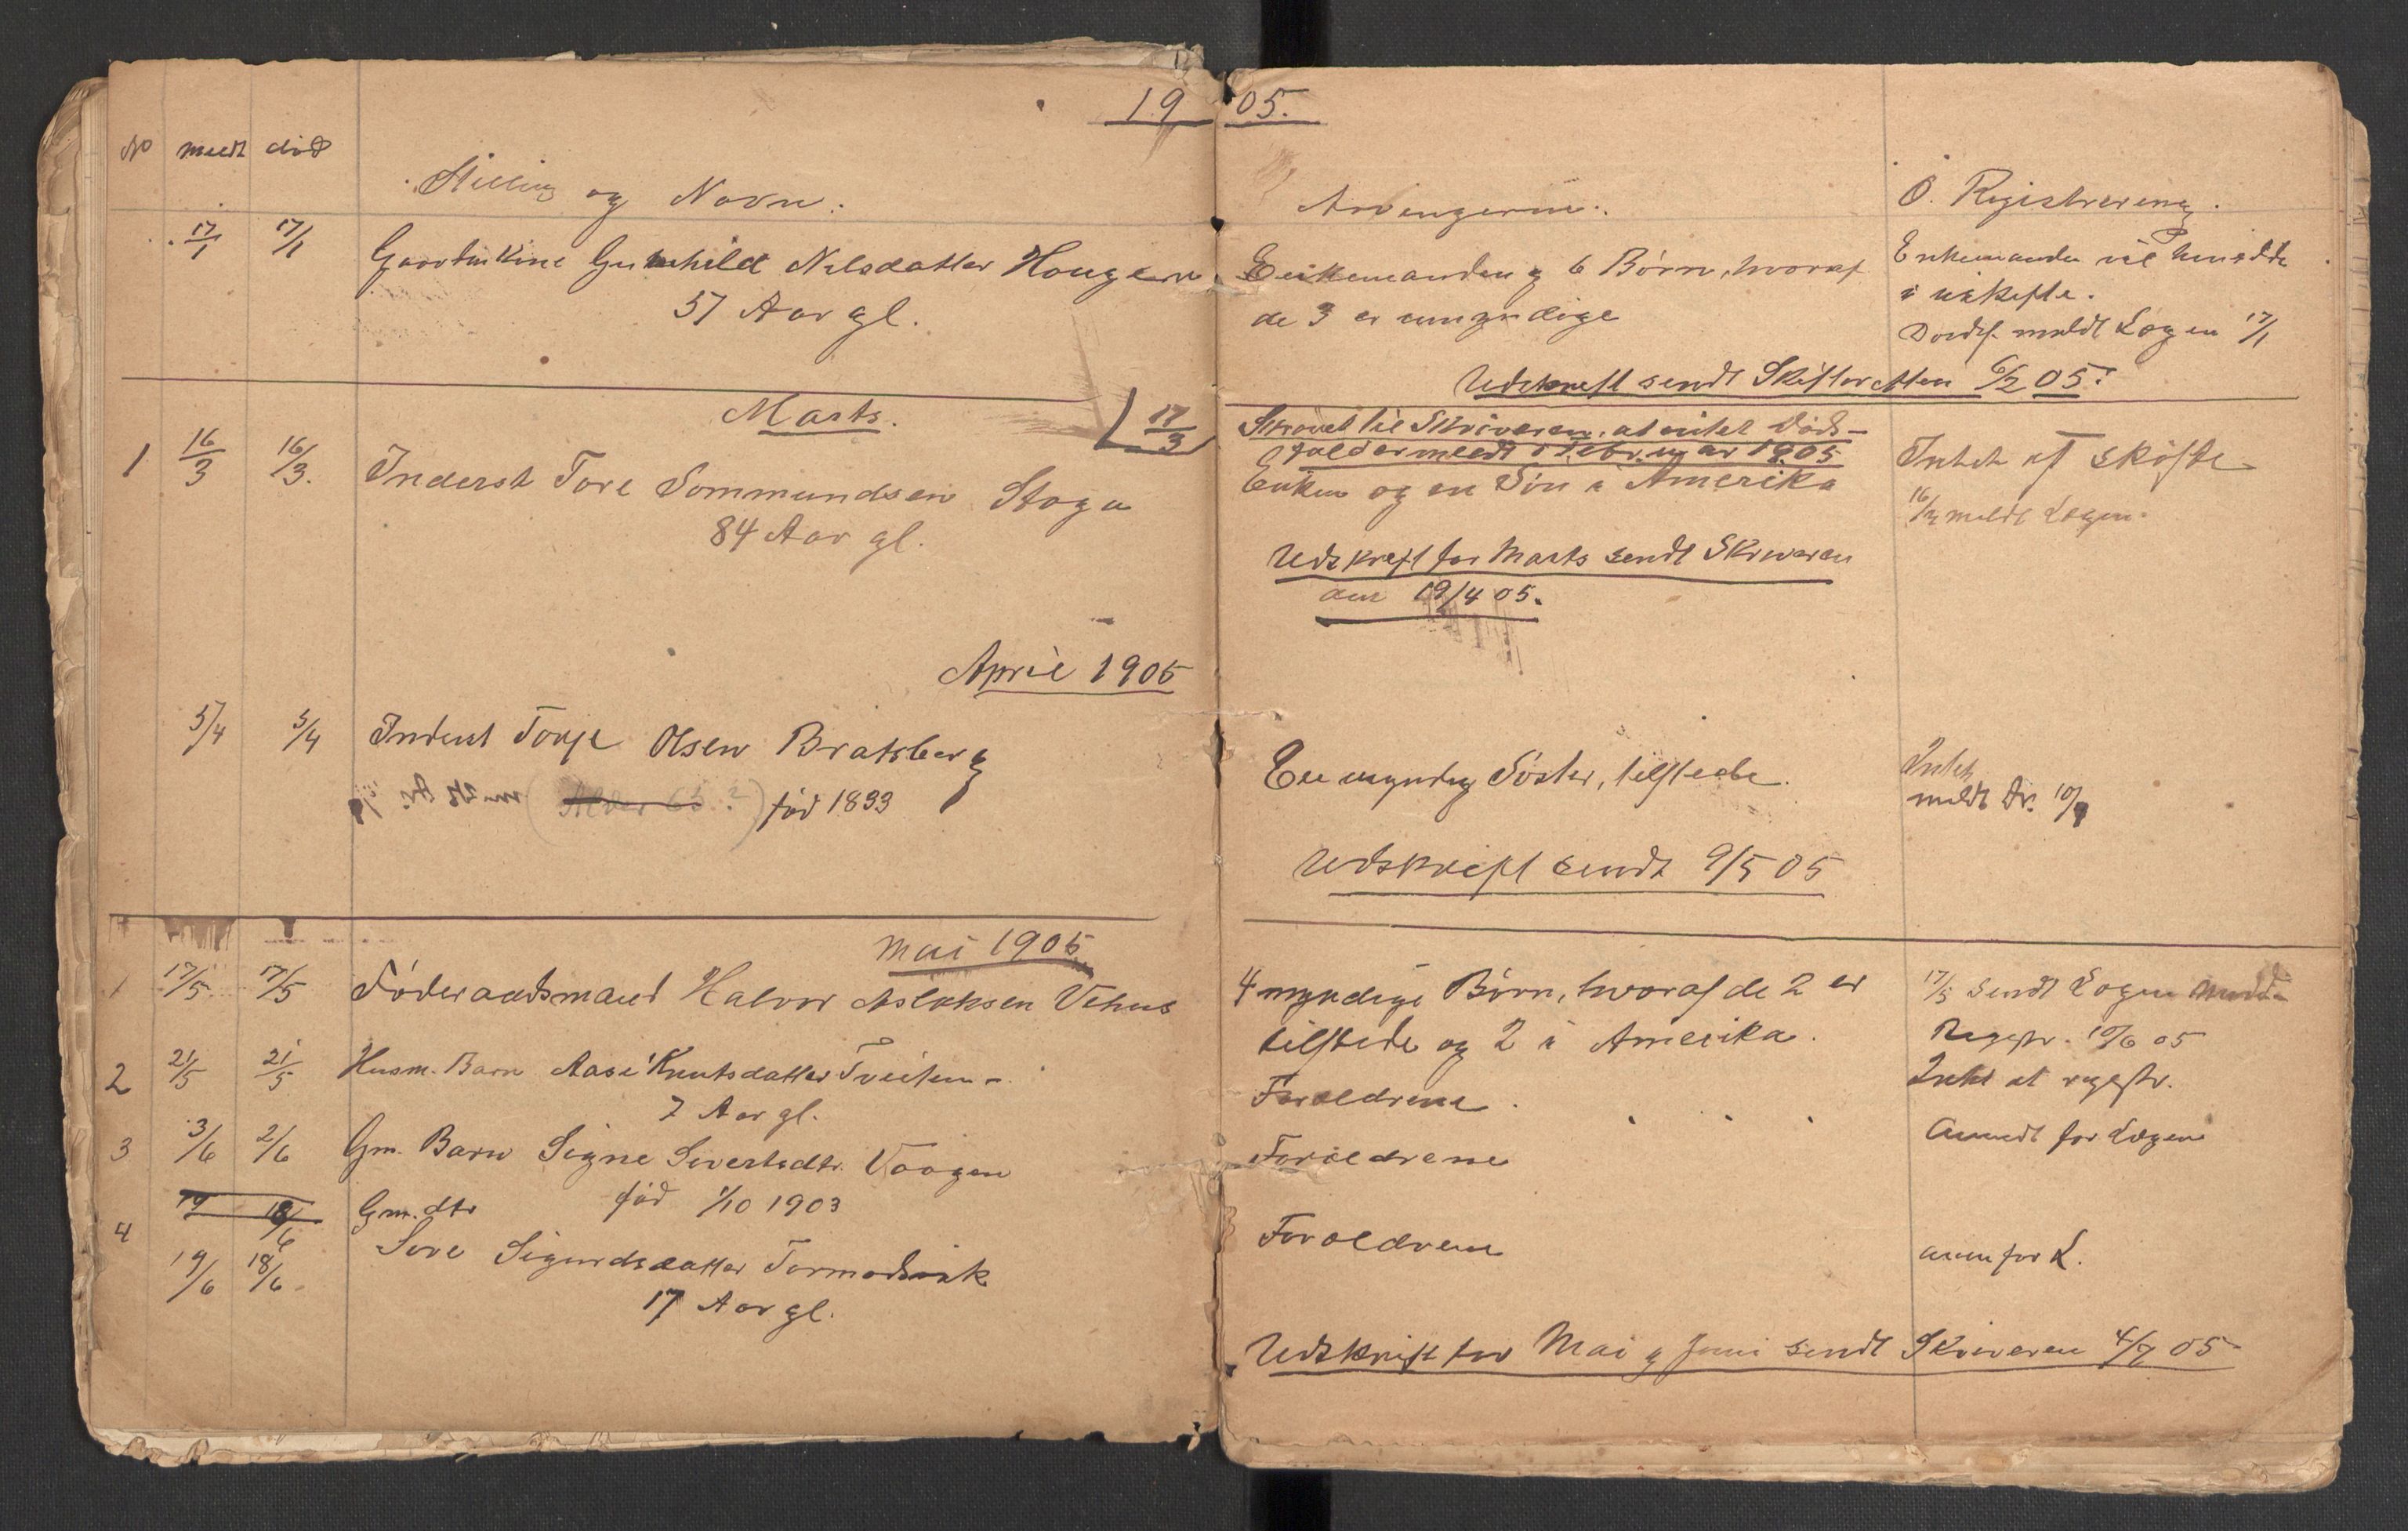 19 05.
No meldt död
Stilling og Navn. Arvingerne. O. Registrering.
17/1 17/1 Gaardmkone Gunhild Nilsdatter Haugen
57 Aar gl.
Enkemanden og 6 Børn, hvoraf
de 3 er umyndige
Enkemanden vil hensidde
i uskifte.
Dødsf. meldt Lægen 17/1
Udskrift sendt Skifteretten 6/2 05.
Marts. 17/3
Skrevet til Skriveren, at intet Døds-
fald er meldt i Februar 1905
1 16/3 16/3. Inderst Tore Sommundsen Stoga
84 Aar gl.
Enken og en Søn i Amerika
Intet at skifte
16/3 meldt Lægen.
Udskrift for Marts sendt Skriveren
den 19/4 05.
April 1905
5/4 5/4 Inderst Torje Olsen Bratsberg
(Alder 65?) född 1833
En myndig Søster, tilstede.
Intet
meldt Dr. 10/4
Udskrift sendt 9/5 05
Mai 1905
1 17/5 17/5 Føderaadsmand Halvor Aslaksen Vehus
4 myndige Børn, hvoraf de 2 er
tilstede og 2 i Amerika.
17/5 sendt Lægen
Regstr. 10/6 05
2 21/5 21/5 Husm. Barn Aase Knutsdatter Tveiten
7 Aar gl.
Forældrene
Intet at regstr.
3 3/6 2/6 Gm. Barn Signe Sivertsdtr. Vaagen
fød 1/10 1903
Forældrene
Anmdt for Lægen
19 18/6
4 19/6 18/6 Gm. dtr
Sore Sigurdsdatter Tormodsvik
17 Aar gl.
Forældrene
anm for L.
Udskrift for Mai og Juni sendt Skriveren 4/7 05